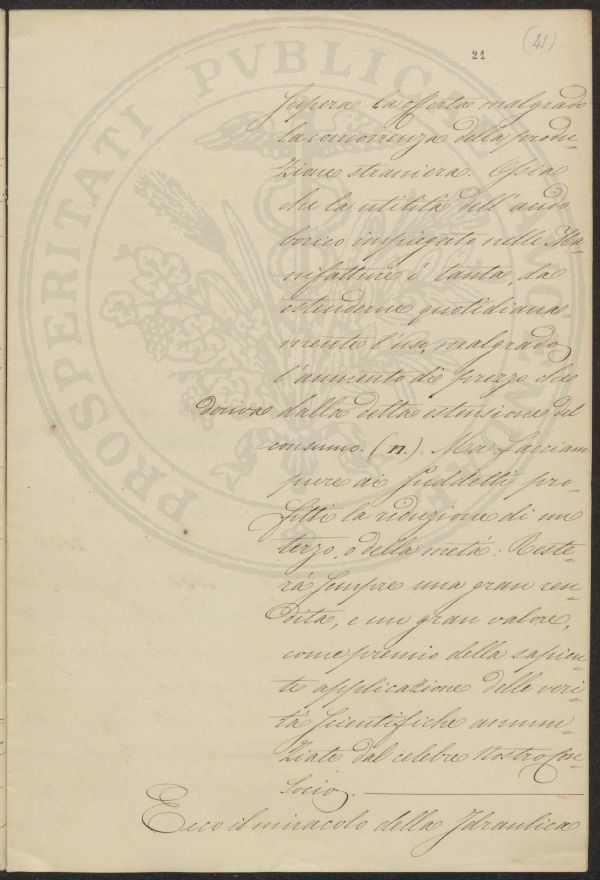 21
(41)
supera la offerta malgrado
la concorrenza della produ=
zione straniera. Ossia
che la utilità dell'acido
borico impiegato nelle Ma=
nifatture é tanta, da
estenderne quotidiana=
mente l'uso, malgrado
l'aumento di prezzo che
deriva dalla detta estensione del
consumo. (17). Ma facciam
pure ai suddetti pro=
fitti la riduzione di un
terzo, o della metà: Reste=
rà sempre una gran ren=
dita, e un gran valore,
come premio della sapien=
te applicazione delle veri=
tà scientifiche annun=
ziate dal celebre nostro Con=
socio.
Ecco il miracolo della Idraulica
PROSPERITATI PVBLICAE